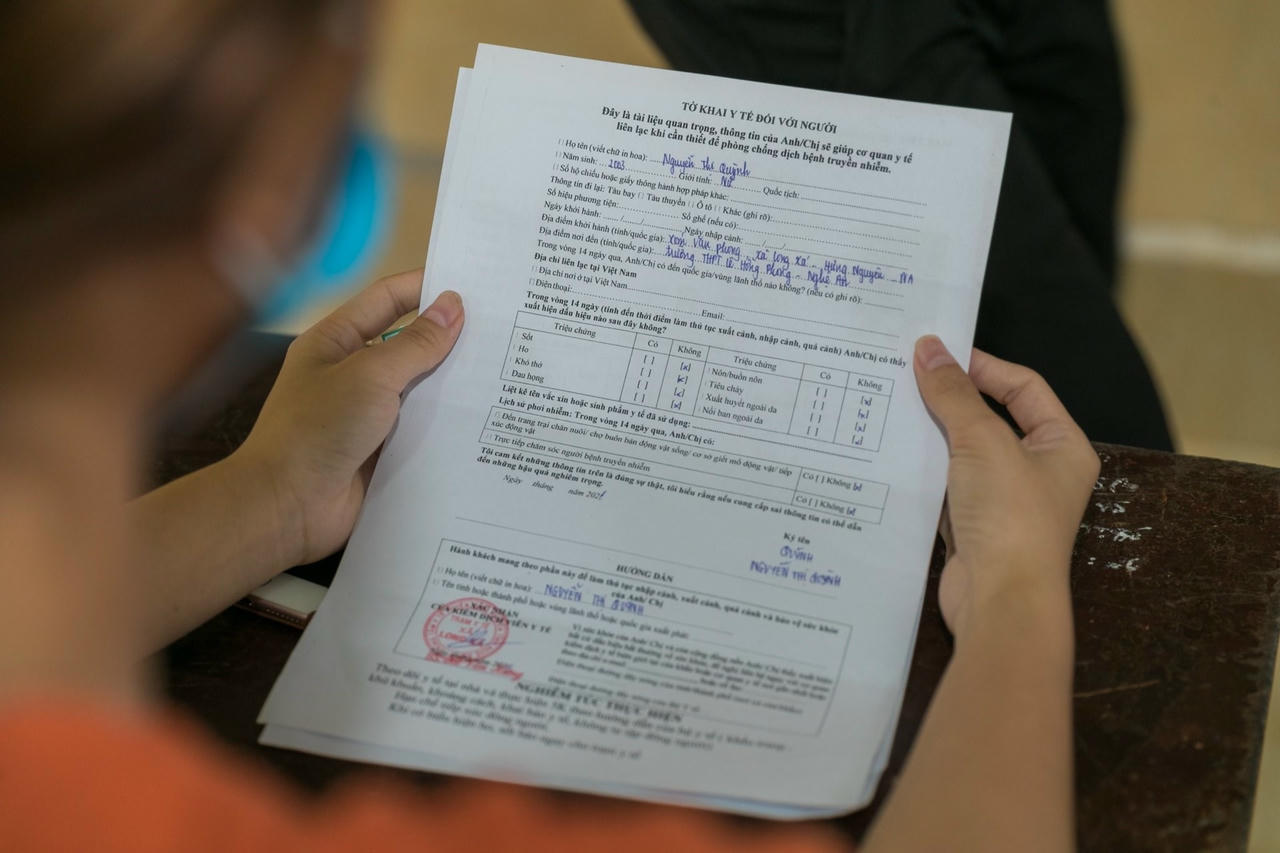 TỜ KHAI Y TẾ ĐỐI VỚI NGƯỜI
Đây là tài liệu quan trọng, thông tin của Anh/Chị sẽ giúp cơ quan y tế
liên lạc khi cần thiết để phòng chống dịch bệnh truyền nhiễm.
Họ tên (viết chữ in hoa): Nguyễn Thị Quỳnh
Năm sinh: 2003 Giới tính: Nữ Quốc tịch:
Số hộ chiếu hoặc giấy thông hành hợp pháp khác:
Thông tin đi lại: Tàu bay [ ] Tàu thuyền [ ] Ô tô [ ] Khác (ghi rõ):
Số hiệu phương tiện: Số ghế (nếu có):
Ngày khởi hành: ...../...../..... Ngày nhập cảnh: ...../...../.....
Địa điểm khởi hành (tỉnh/quốc gia): xóm Văn phong, xã long xá, Hưng Nguyên NA
Địa điểm nơi đến (tỉnh/quốc gia): trường THPT Lê Hồng Phong - Nghệ An
Trong vòng 14 ngày qua, Anh/Chị có đến quốc gia/vùng lãnh thổ nào không? (nếu có ghi rõ):
Địa chỉ liên lạc tại Việt Nam
Địa chỉ nơi ở tại Việt Nam
Điện thoại: Email:
Trong vòng 14 ngày (tính đến thời điểm làm thủ tục xuất cảnh, nhập cảnh, quá cảnh) Anh/Chị có thấy
xuất hiện dấu hiệu nào sau đây không?
Triệu chứng Có Không Triệu chứng Có Không
Sốt [ ] [x] Nôn/buồn nôn [ ] [x]
Ho [ ] [x] Tiêu chảy [ ] [x]
Khó thở [ ] [x] Xuất huyết ngoài da [ ] [x]
Đau họng [ ] [x] Nổi ban ngoài da [ ] [x]
Liệt kê tên vắc xin hoặc sinh phẩm y tế đã sử dụng:
Lịch sử phơi nhiễm: Trong vòng 14 ngày qua, Anh/Chị có:
Đến trang trại chăn nuôi/ chợ buôn bán động vật sống/ cơ sở giết mổ động vật/ tiếp
xúc động vật Có [ ] Không [x]
Trực tiếp chăm sóc người bệnh truyền nhiễm Có [ ] Không [x]
Tôi cam kết những thông tin trên là đúng sự thật, tôi hiểu rằng nếu cung cấp sai thông tin có thể dẫn
đến những hậu quả nghiêm trọng.
Ngày tháng năm 2021
Ký tên
QUỲNH
NGUYỄN THỊ QUỲNH
HƯỚNG DẪN
Hành khách mang theo phần này để làm thủ tục nhập cảnh, xuất cảnh, quá cảnh và bảo vệ sức khỏe
của Anh/ Chị
Họ tên (viết chữ in hoa): NGUYỄN THỊ QUỲNH
Tên tỉnh hoặc thành phố hoặc vùng lãnh thổ hoặc quốc gia xuất phát:
XÁC NHẬN
CỦA KIỂM DỊCH VIÊN Y TẾ
TRẠM Y TẾ
XÃ
LONG XÁ
Vì sức khỏe của Anh/Chị và của cộng đồng nếu Anh/Chị thấy xuất hiện
bất cứ dấu hiệu bất thường về sức khỏe, đề nghị liên hệ ngay với cơ quan
NGHIÊM TÚC THỰC HIỆN
Theo dõi y tế tại nhà và thực hiện 5K theo hướng dẫn của bộ y tế ( khẩu trang -
khử khuẩn, khoảng cách, khai báo y tế, không tụ tập đông người)
Hạn chế tiếp xúc đông người,
Khi có biểu hiện ho, sốt báo ngay cho trạm y tế